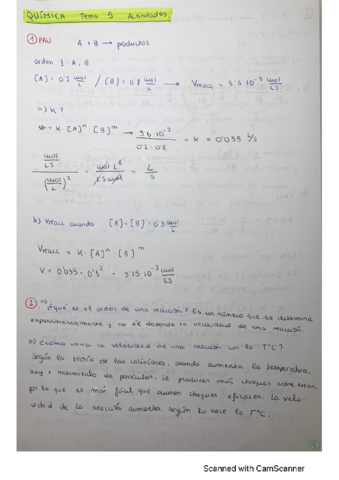 QUÍMICA Tema 5 Actividades
① PAU A + B → productos
orden 1: A, B
[A] = 0'2 mol/L / [B] = 0'8 mol/L → Vreacc = 5'6·10⁻³ mol/LS
a) K?
v = K·[A]ⁿ·[B]ᵐ → 5'6·10⁻³ / 0'2·0'8 = K = 0'035 L/S
mol/LS / (mol/L)² = mol·L² / LS mol² = L/S
b) Vreacc cuando [A] = [B] = 0'3 mol/L
Vreacc = K·[A]ⁿ·[B]ᵐ
V = 0'035·0'3² = 3'15·10⁻³ mol/LS
① a) ¿qué es el orden de una reacción? Es un número que se determina
experimentalmente y de él depende la velocidad de una reacción.
¿cómo varía la velocidad de una reacción con la TªC?
Según la teoría de las colisiones, cuando aumenta la temperatura,
hay + movimiento de partículas. Se producen más choques entre
por lo que es más fácil que ocurran choques eficaces. La velo-
cidad de la reacción aumenta según lo hace la TªC.
Scanned with CamScanner